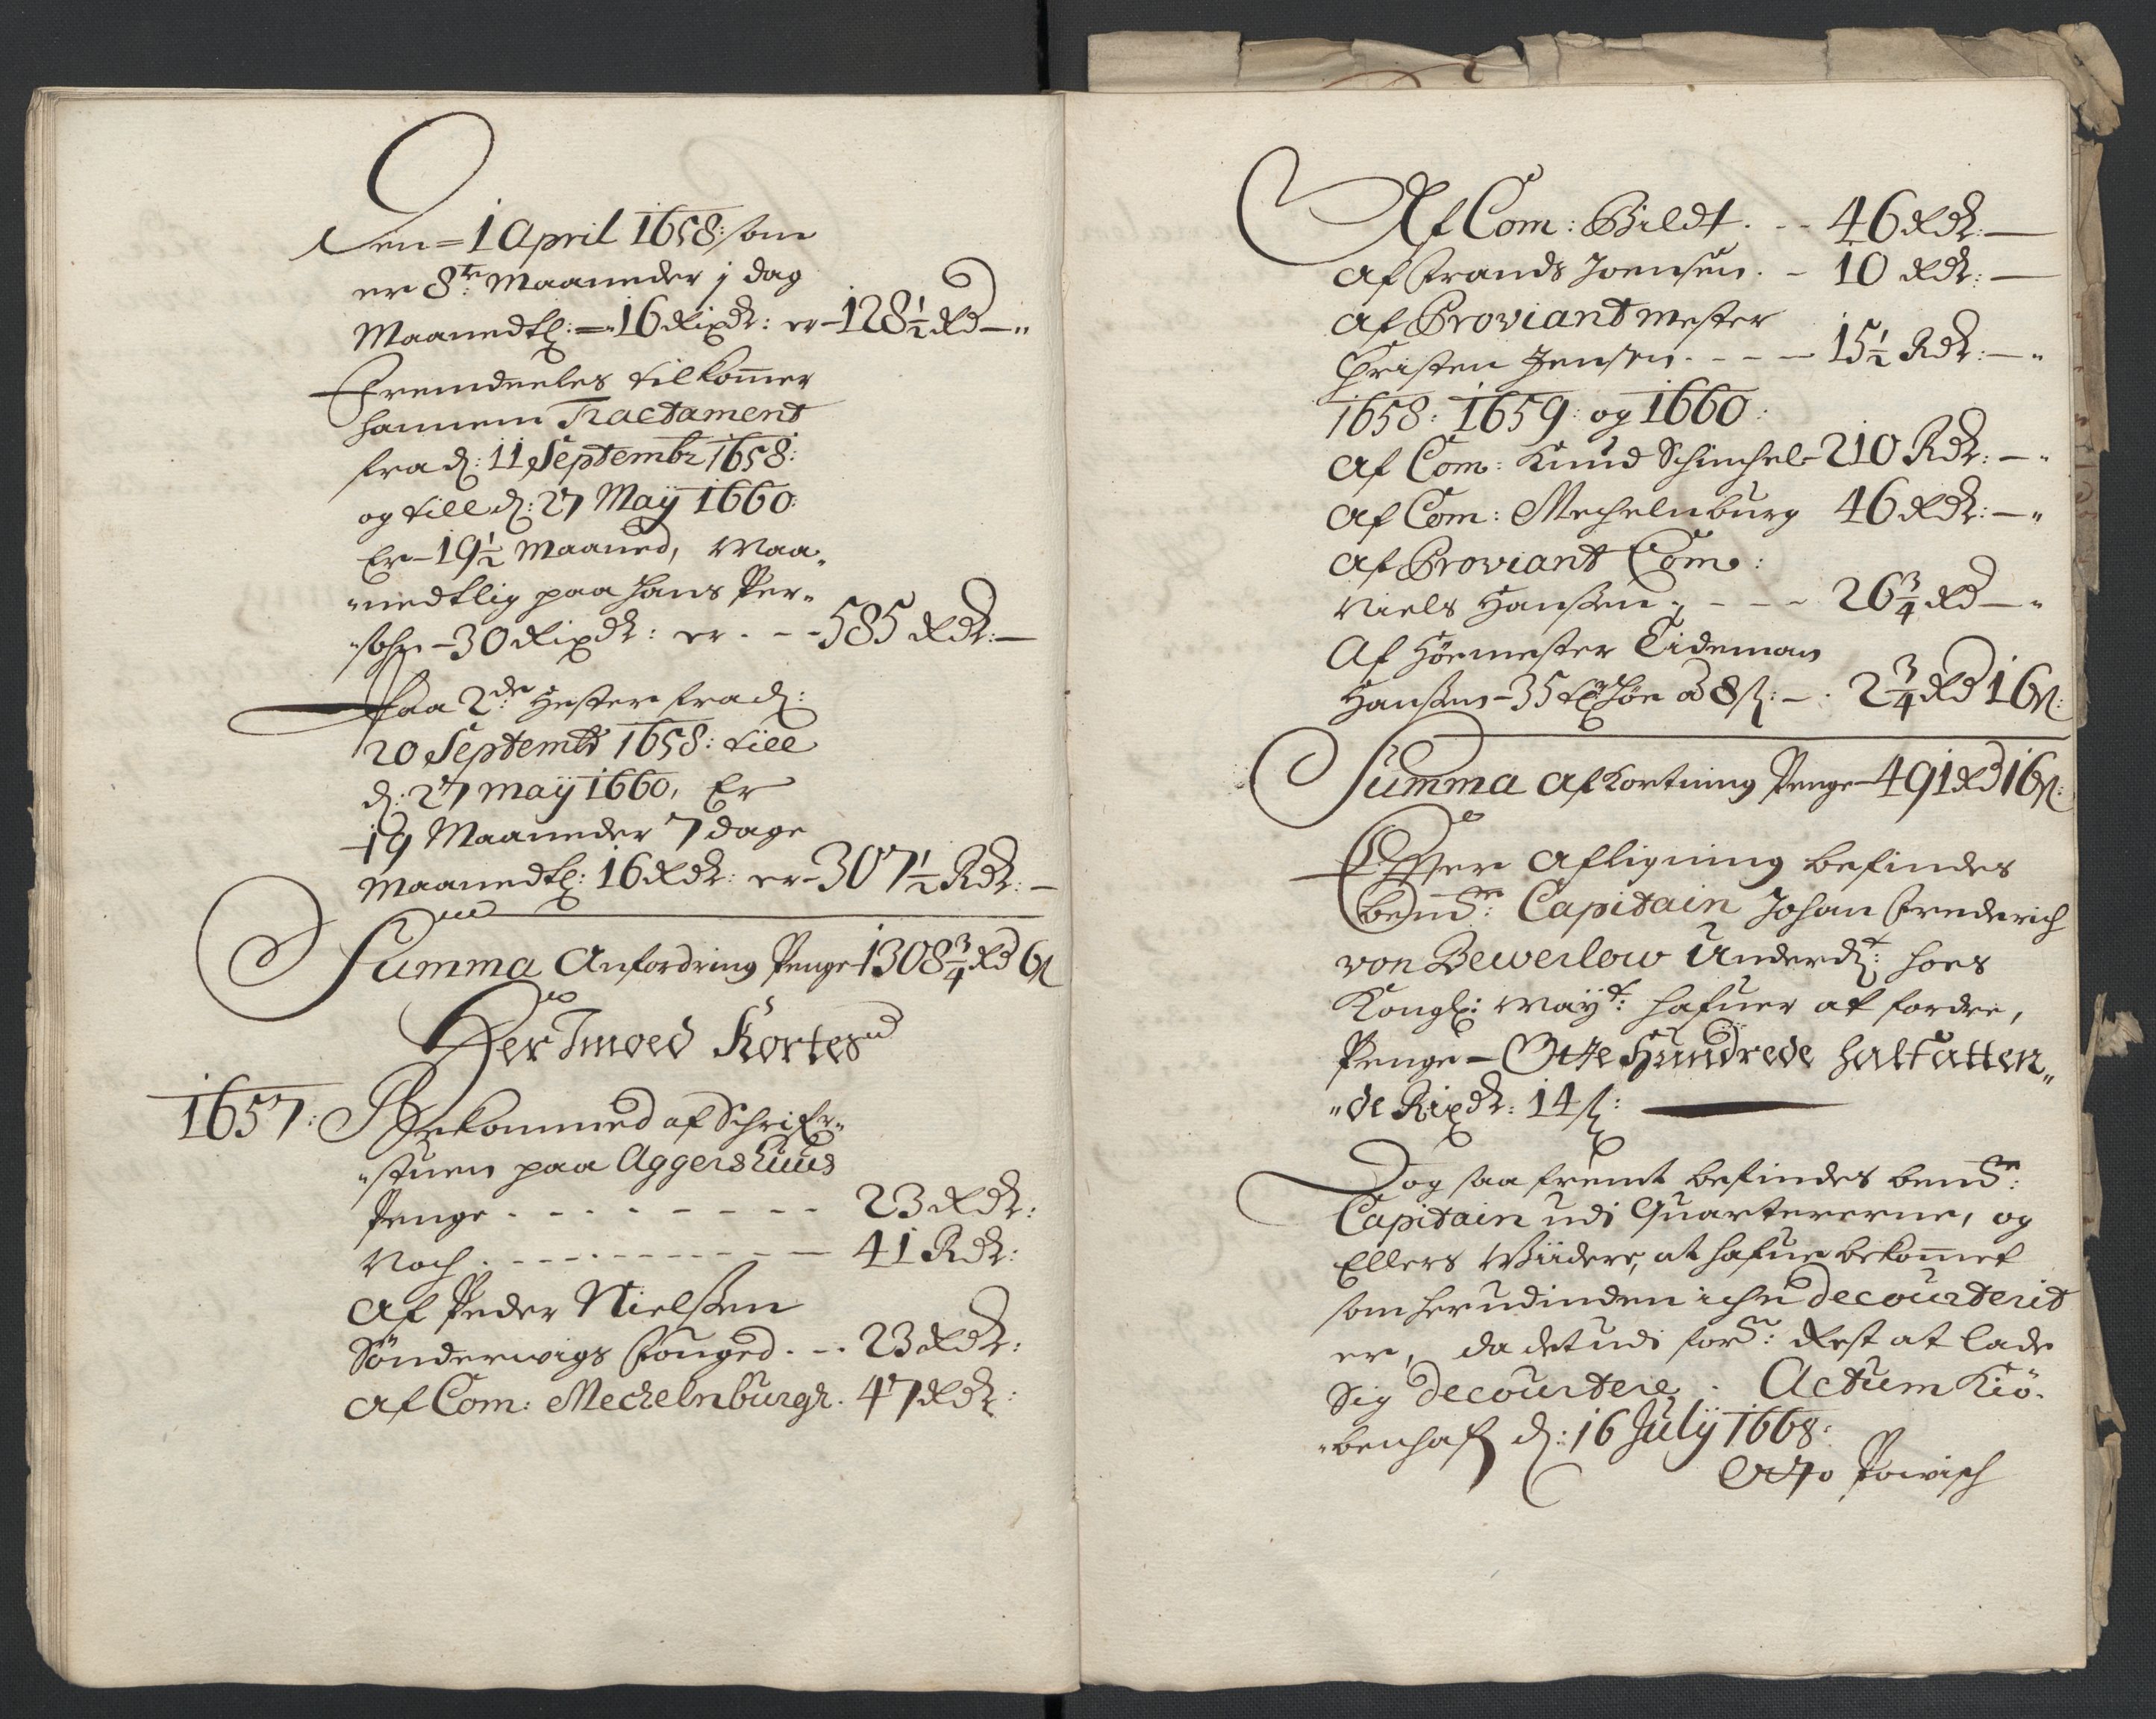 Den = 1 April 1658: som
er 8te: Maaneder j dag
Maanedtl: = 16 Rixdr: er - 128 1/2 Rd - "
Fremdeeles tilkommer
hannem Tractament
fra d: 11 Septembr 1658:
og till d: 27 Maÿ 1660:
Er - 19 1/2 Maaned, Maa-
nedtlig paa hans Per-
sohn - 30 Rixdr: er - - - 585 Rdr: -
Paa 2de: Hester fra d:
20 Septembr 1658: till
d: 27 maÿ 1660, Er
19 Maaneder 7 dage
Maanedtl: 16 Rdr: er - 307 1/2 Rdr: -
Summa Anfordring Penge 1308 3/4 Rd 6 ß
Her Imoed Kortes
1657: Bekommed af Schrifr-
stuen paa Aggershuus
Penge - - - - - - - - 23 Rdr:
Noch - - - - - - - - - - 41 Rdr:
Af Peder Nielssen
Sönderwigs fouged - - - 23 Rdr:
Af Com: Mechelnburgh - 47 Rdr:
Af Com: Bildt - - - 46 Rdr: -
Af frands Joensen - - 10 Rdr: -
Af Proviantmester
Christen Jensen - - - - 15 1/2 Rdr: - "
1658: 1659: og 1660:
Af Com: Knud Schinchel - 210 Rdr: - "
Af Com: Mechelnburg 46 Rdr: - "
Af Proviant Com:
Niels Hanssen - - - - 26 3/4 Rd - "
Af Höemester Tideman
Hanssen - 35 höe à 8 ß: - - 2 3/4 Rd 16 ß:
Summa Afkortning Penge - 491 Rd 16 ß:
Effter Afligning befindes
bemte: Capitain Johan frederich
von Bewerlow Underdt: hoes
Kongl: Maÿt: hafuer at fordre,
Penge - Otte Hundrede halfatten-
de Rixdr: 14 ß:
Dog saa fremt befindes bemte:
Capitain udi Quartererne, og
Ellers Wiidere, at hafue bekommet
som herudinden iche decourterit
er, da det udi forne: Rest at lade
Sig decourtere. Actum Kiö-
benhafn d: 16 Julÿ 1668:
Otto Powisch